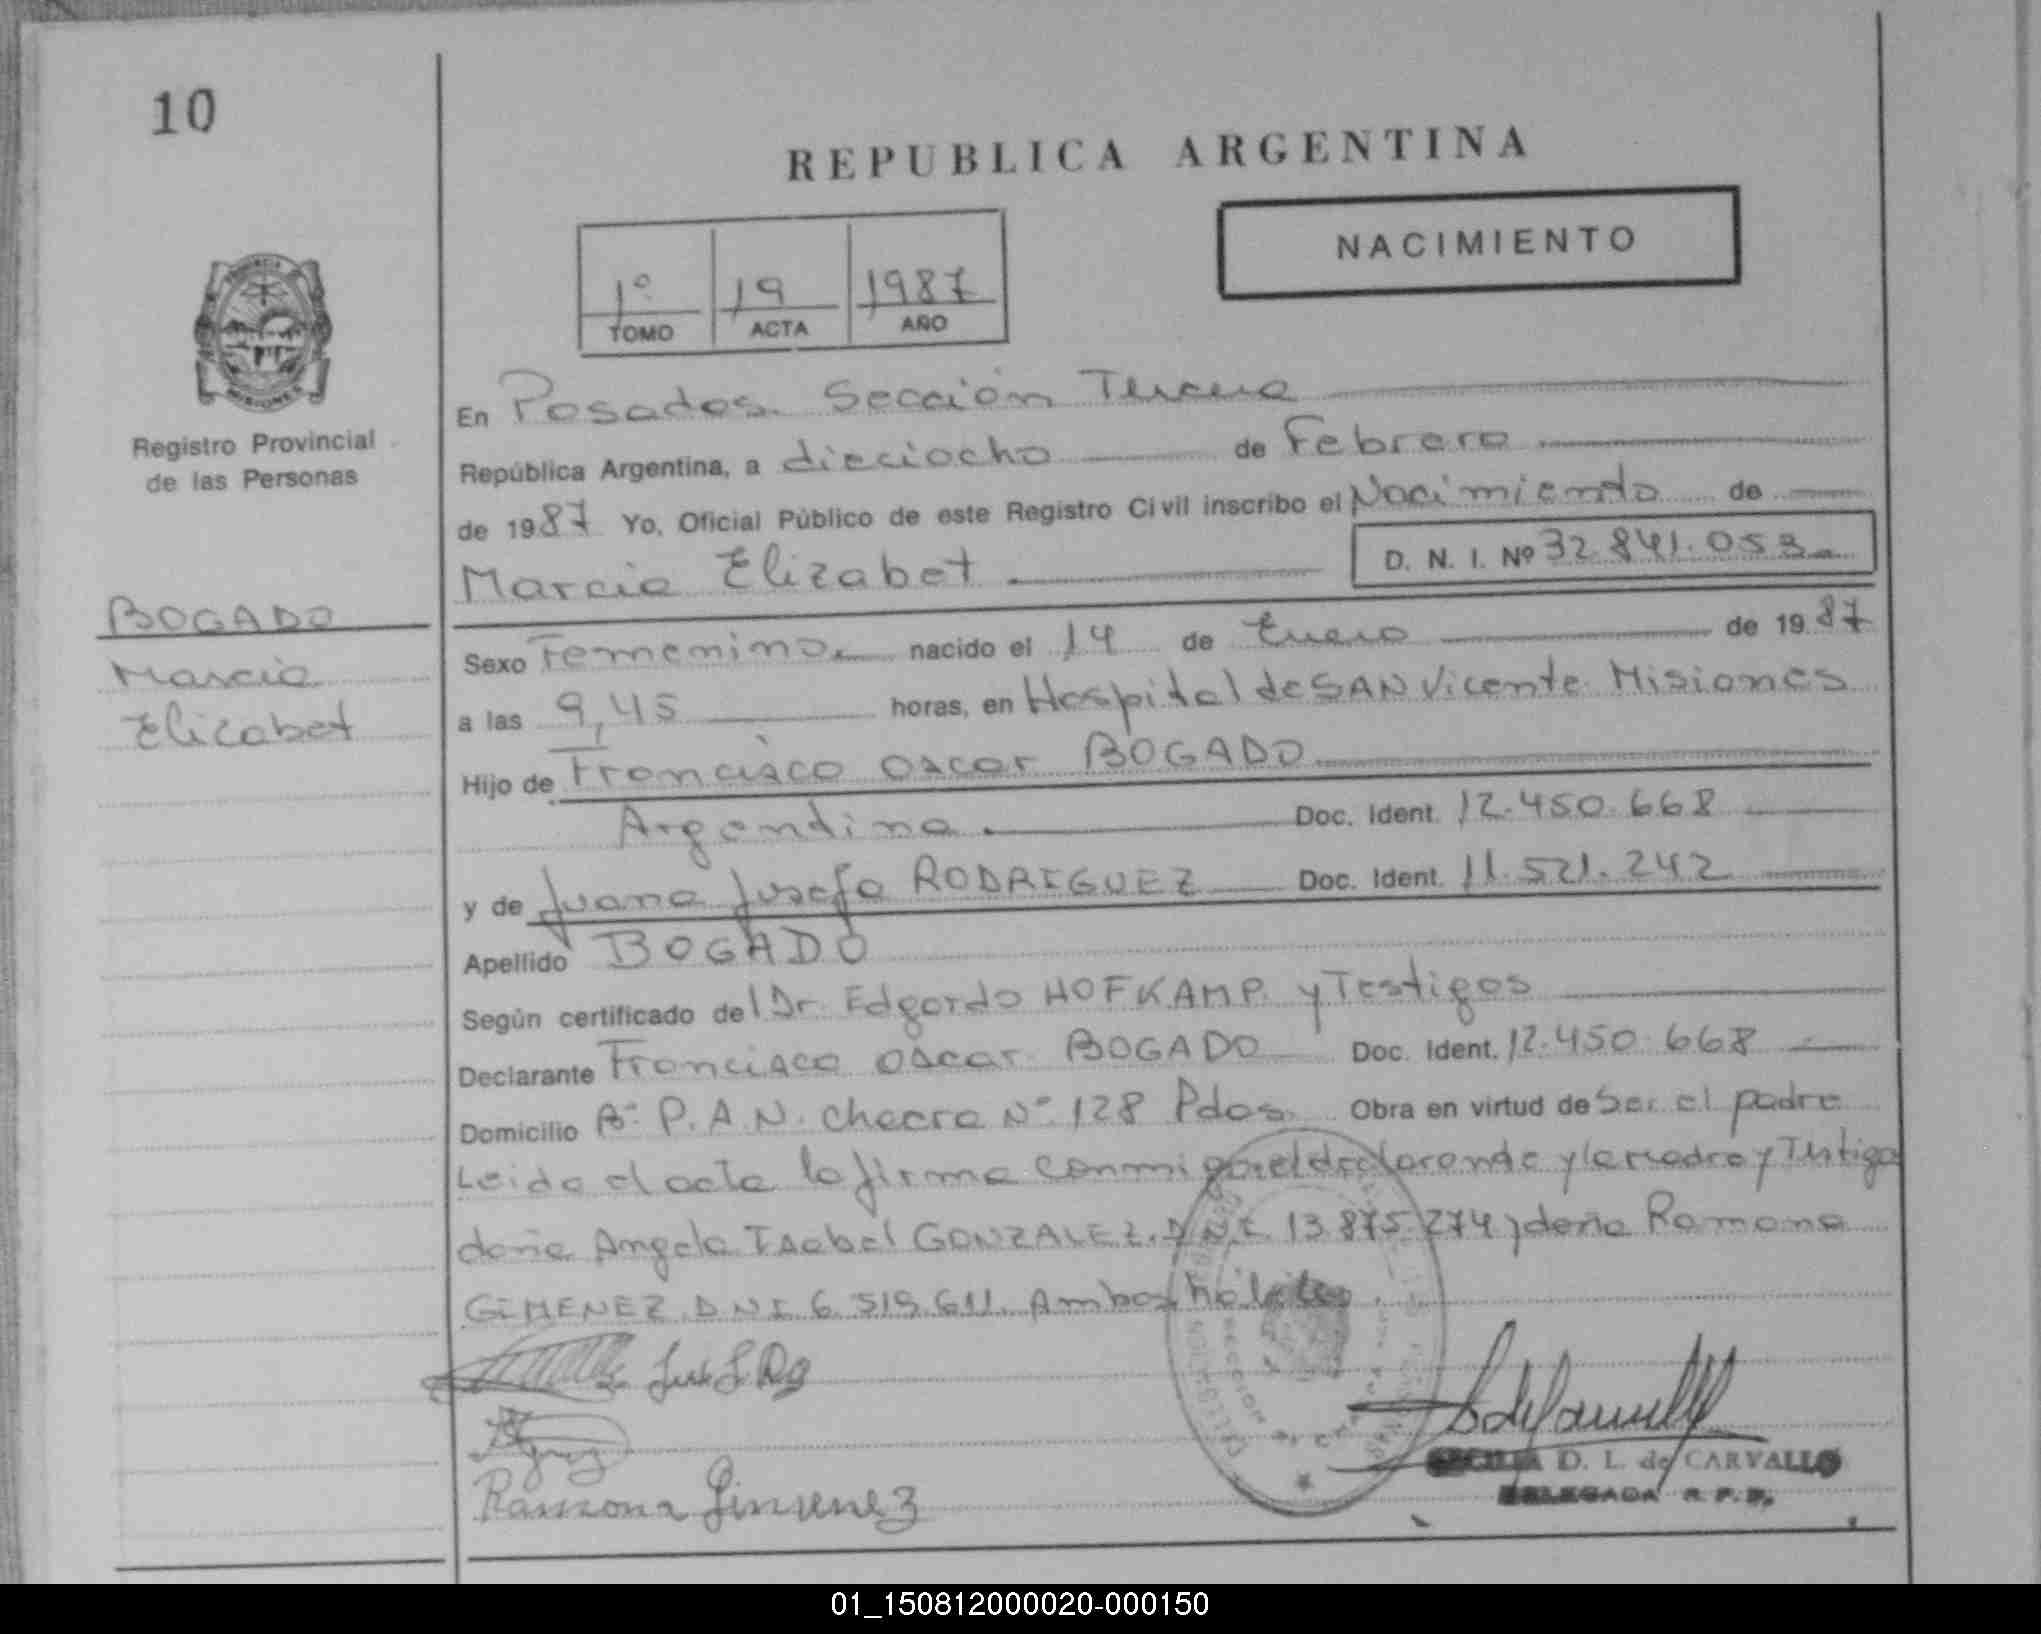 10
REPUBLICA ARGENTINA
NACIMIENTO
1º 19 1987
TOMO ACTA AÑO
PROVINCIA
MISIONES
Registro Provincial
de las Personas
En Posadas. Sección Tercera
República Argentina, a dieciocho de Febrero
de 1987 Yo, Oficial Público de este Registro Civil inscribo el Nacimiento de
Marcia Elizabet D. N. I. Nº 32.841.053
BOGADO
Marcia
Elizabet
Sexo Femenino. nacido el 14 de Enero de 1987
a las 9,45 horas, en Hospital de SAN Vicente Misiones
Hijo de Francisco Oscar BOGADO
Argentino. Doc. Ident. 12.450.668
y de Juana Josefa RODRIGUEZ Doc. Ident. 11.521.242
Apellido BOGADO
Según certificado del Dr. Edgardo HOFKAMP. y Testigos
Declarante Francisco Oscar BOGADO Doc. Ident. 12.450.668
Domicilio Bº P.A.N. Chacra Nº 128 Pdas. Obra en virtud de Ser el padre
Leida el acta la firma conmigo el declarante y la madre y Testigo
doña Angela Isabel GONZALEZ. D.N.I. 13.875.274 y doña Ramona
GIMENEZ. DNI 6.519.611. Ambos
Ramona Gimenez
D. L. de CARVALLO
DELEGADA R. P. P.
01_150812000020-000150